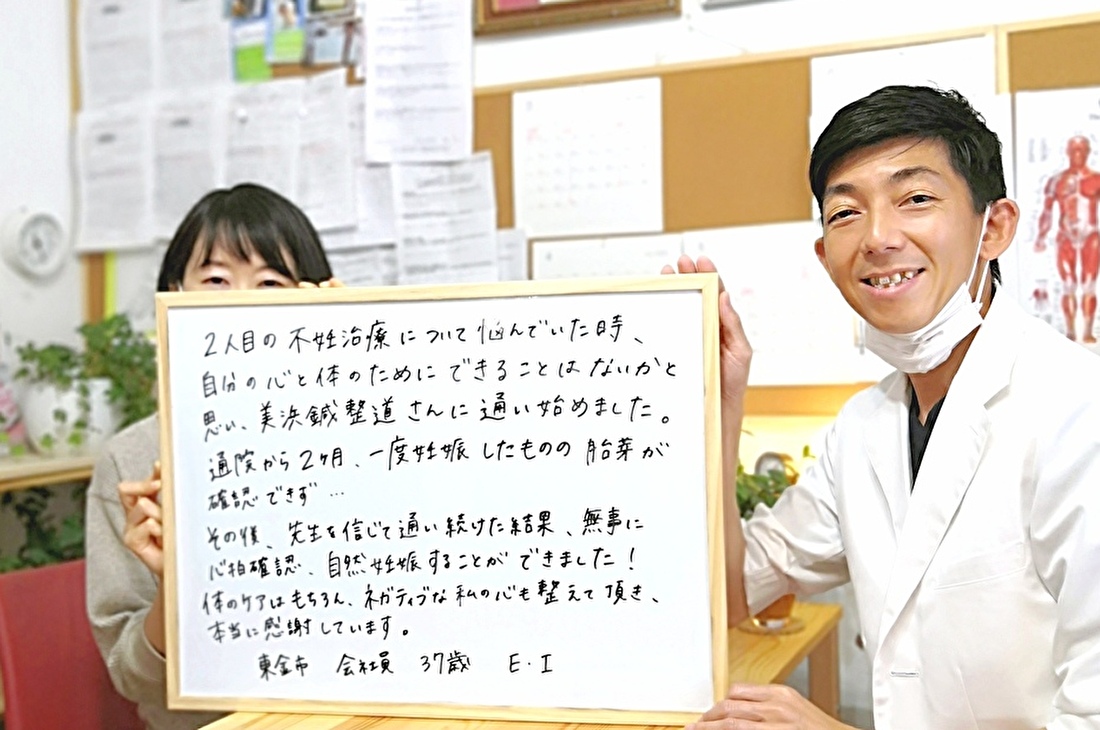 2人目の不妊治療について悩んでいた時、
自分の心と体のためにできることはないかと
思い、美浜鍼整道さんに通い始めました。
通院から2ヶ月、一度妊娠したものの胎芽が
確認できず…
その後、先生を信じて通い続けた結果、無事に
心拍確認、自然妊娠することができました！
体のケアはもちろん、ネガティブな私の心も整えて頂き、
本当に感謝しています。
東金市 会社員 37歳 E・I